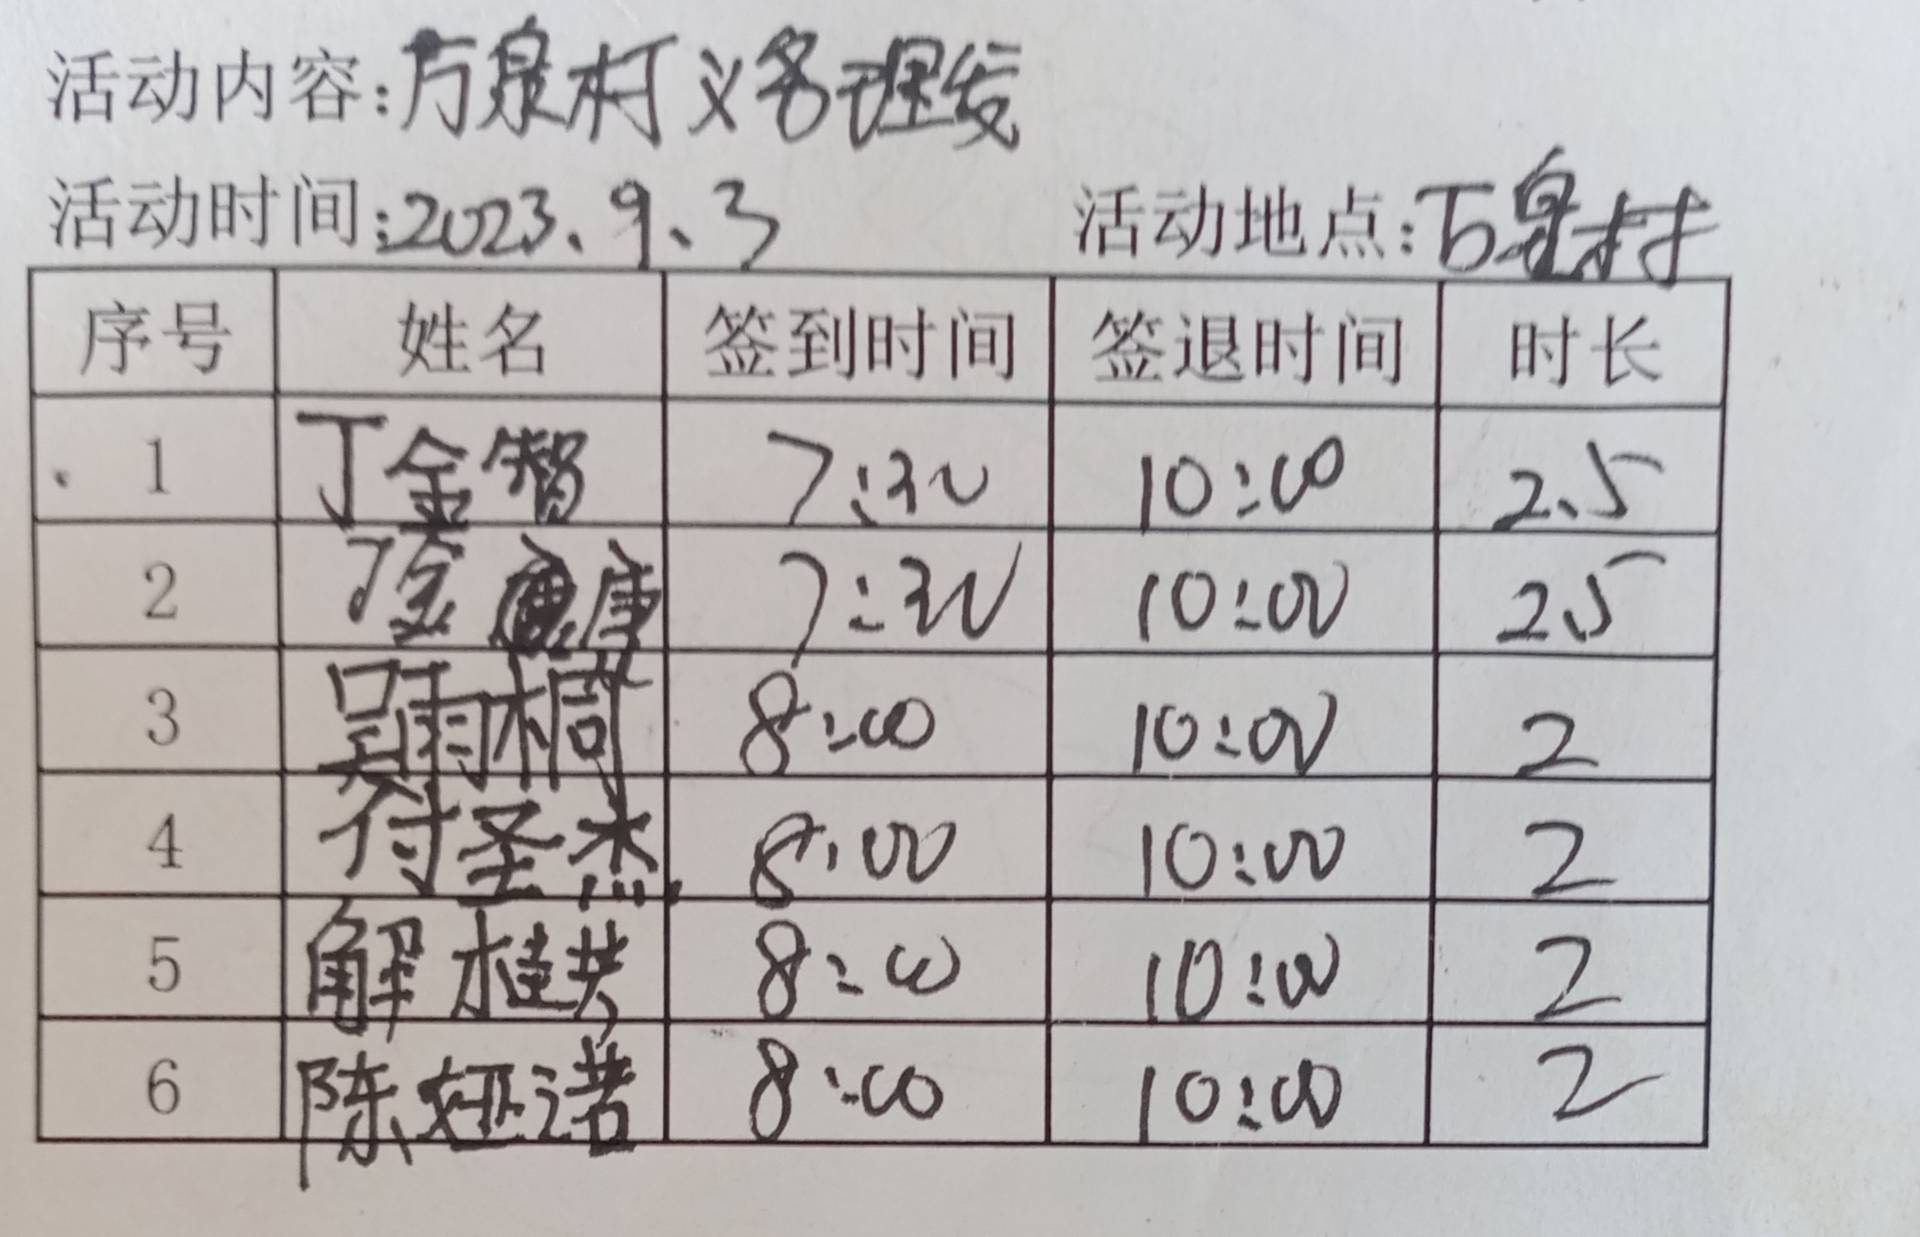 活动内容:万泉村义务理发
活动时间:2023.9.3 活动地点:万泉村
序号 姓名 签到时间 签退时间 时长
1 丁金智 7:30 10:00 2.5
2 丁金康 7:30 10:00 2.5
3 吴雨桐 8:00 10:00 2
4 付圣杰 8:00 10:00 2
5 解 8:00 10:00 2
6 陈娅诺 8:00 10:00 2